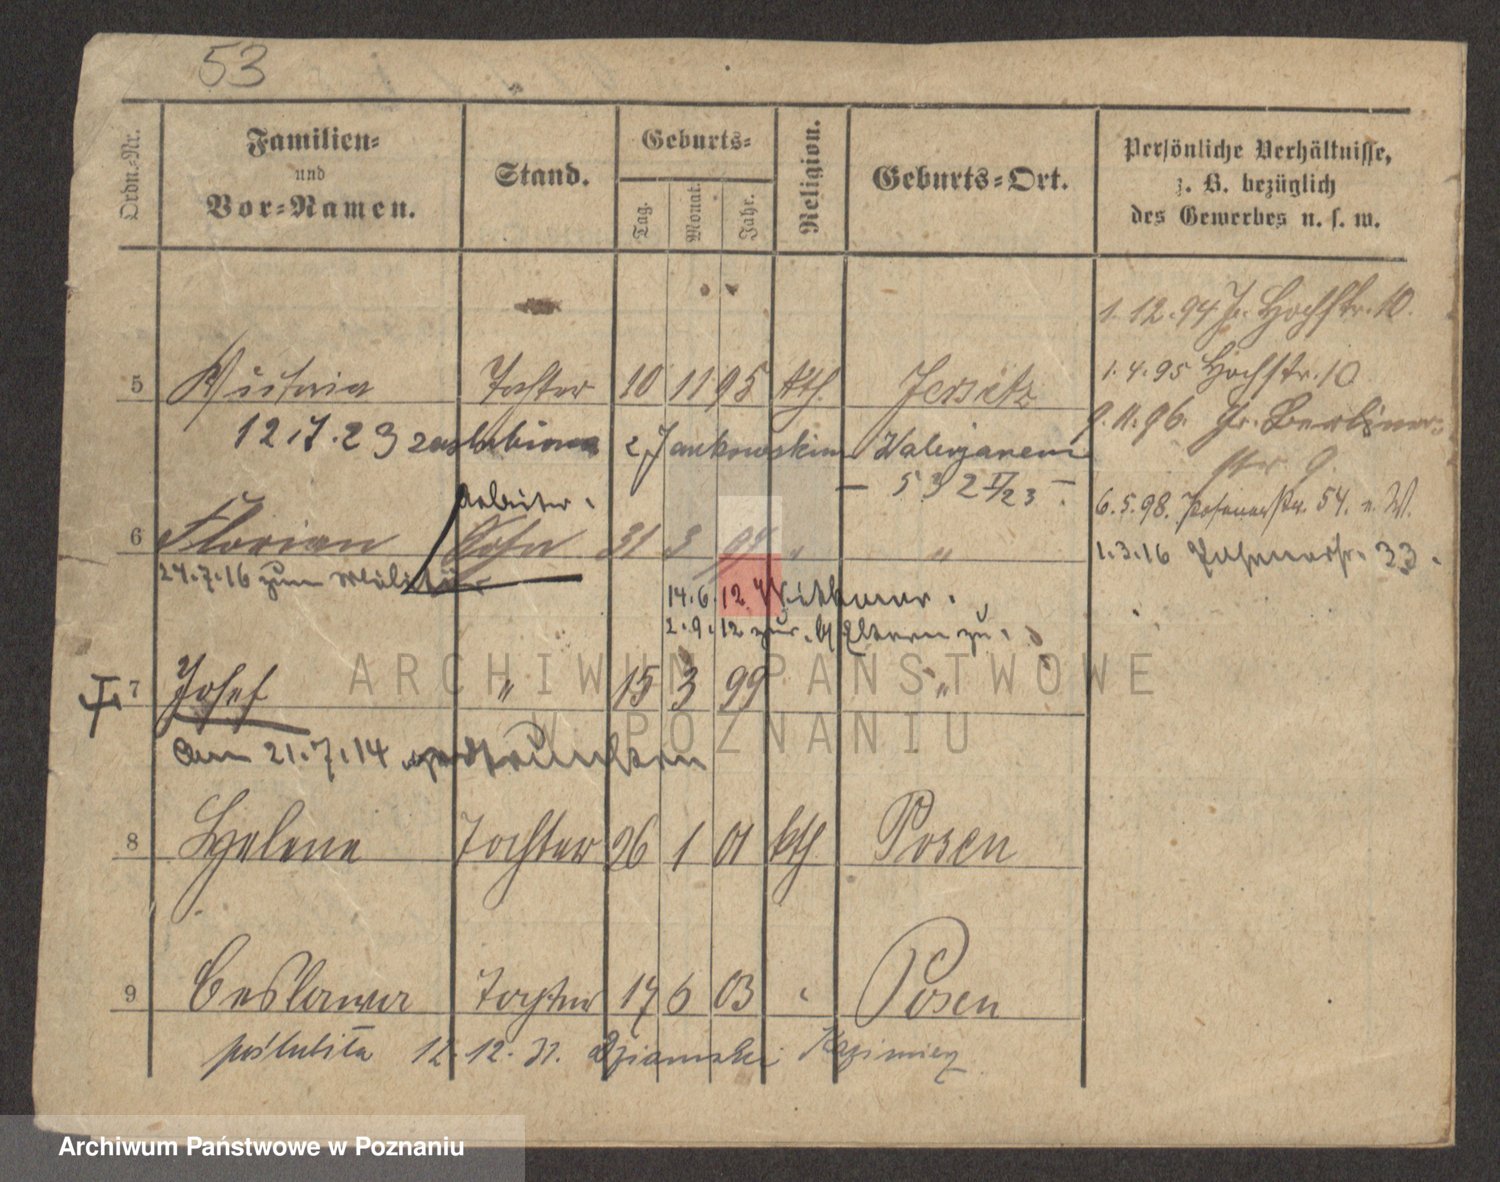 53
Ordn.-Nr.
Familien-
und
Vor-Namen.
Stand.
Geburts-
Tag.
Monat.
Jahr.
Religion.
Geburts-Ort.
Persönliche Verhältnisse,
z. B. bezüglich
des Gewerbes u. s. w.
1.12.94 Jr. Hochstr. 10.
1.4.95 Hochstr. 10
5 Tochter 10 11 95 kth. Jersitz
9.11.96. Gr. Berliner-
str 9.
12.7.23 zaślubiona z Jankowskim Walerjanem
– 532 II/23 –.
6.5.98. Posenerstr. 54. n. W.
Arbeiter.
6 Florian Sohn 31 3 97 " "
1.3.16 33.
24.7.16 zum Militär
14.6.12
2.9.12 zur. Eltern zu.
7 Josef " 15 3 99 "
am 21.7.14 ertrunken
8 Helene Tochter 26 1 01 kth. Posen
9 Ceslawa Tochter 17 6 03 " Posen
poślubiła 12.12.31. Kazimierz
ARCHIWUM PAŃSTWOWE
W POZNANIU
Archiwum Państwowe w Poznaniu